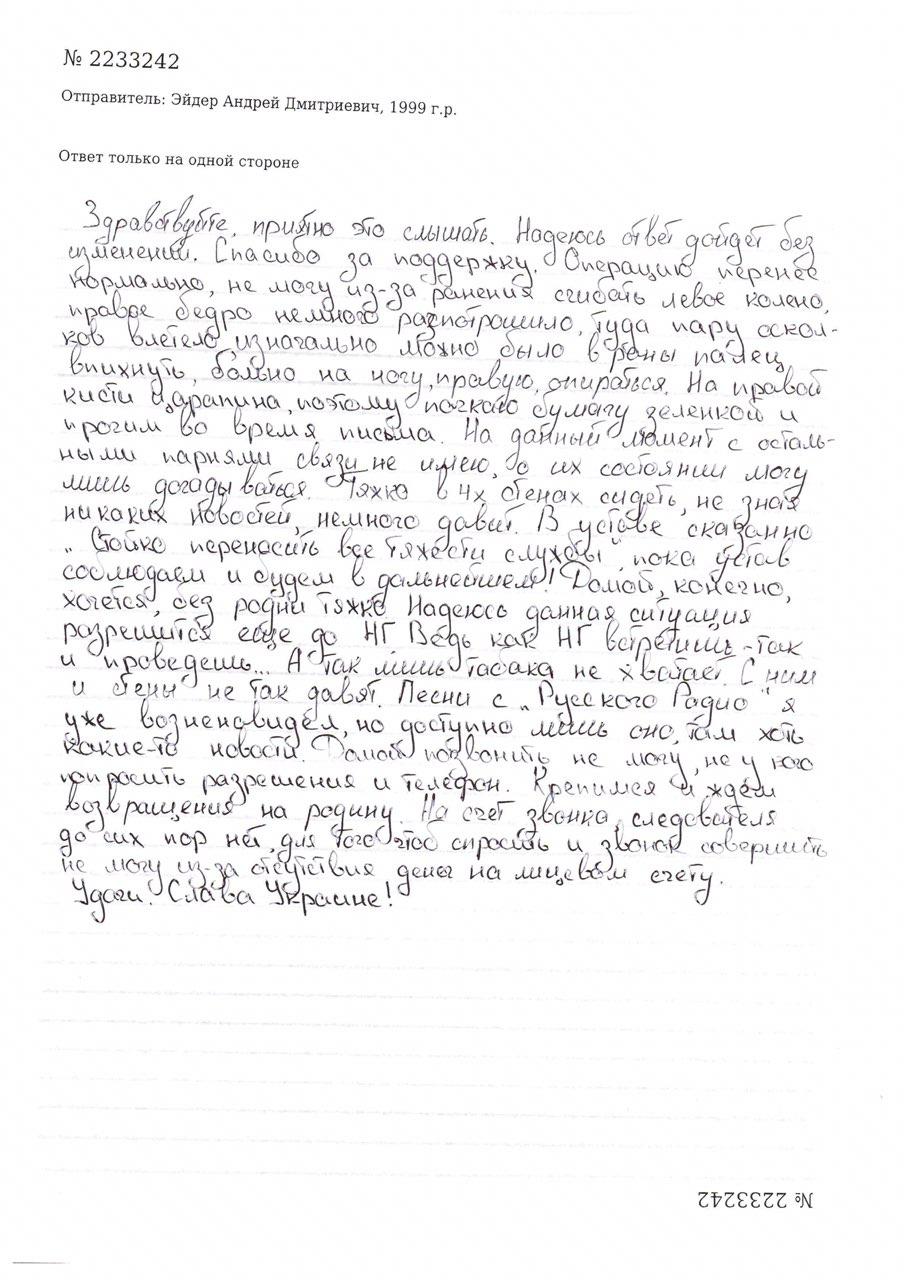 № 2233242
Отправитель: Эйдер Андрей Дмитриевич, 1999 г.р.
Ответ только на одной стороне
Здравствуйте, приятно это слышать. Надеюсь ответ дойдет без
изменений. Спасибо за поддержку. Операцию перенес
нормально, не могу из-за ранения сгибать левое колено,
правое бедро немного распотрошило, туда пару оскол-
ков влетело, изначально можно было в раны палец
впихнуть, больно на ногу, правую, опираться. На правой
кисти царапина, поэтому пачкаю бумагу зеленкой и
прочим во время письма. На данный момент с осталь-
ными парнями связи не имею, о их состоянии могу
лишь догадываться. Тяжко в 4х стенах сидеть, не зная
никаких новостей, немного давит. В уставе сказанно
„Стойко переносить все тяжести службы", пока устав
соблюдаем и будем в дальнейшем! Домой, конечно,
хочется, без родни тяжко Надеюсь данная ситуация
разрешится еще до НГ Ведь как НГ встретишь-так
и проведешь... А так лишь табака не хватает. С ним
и стены не так давят. Песни с „Русского Радио" я
уже возненавидел, но доступно лишь оно, там хоть
какие-то новости. Домой позвонить не могу, не у кого
попросить разрешения и телефон. Крепимся и ждем
возвращения на родину. На счет звонка, следователя
до сих пор нет, для того чтоб спросить и звонок совершить
не могу из-за отсутствия денег на лицевом счету.
Удачи. Слава Украине!
№ 2233242